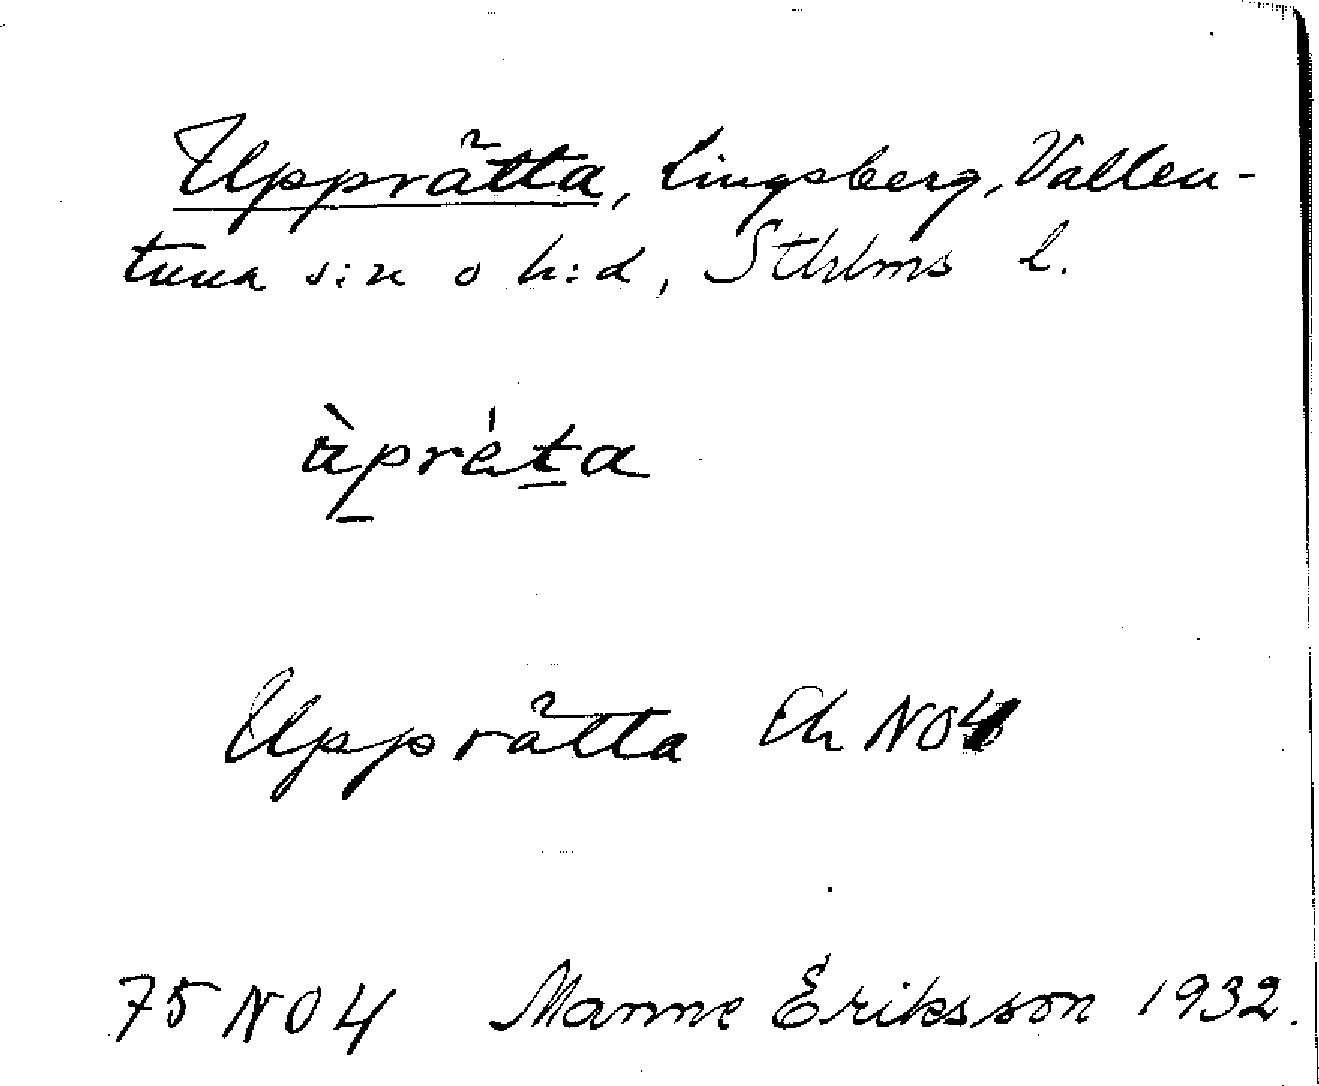 Upprätta, Lingsberg, Vallen-
tuna s:n o h:d, Sthlms l.
àpréta
Upprätta Ek NO4
75 NO4 Manne Eriksson 1932.